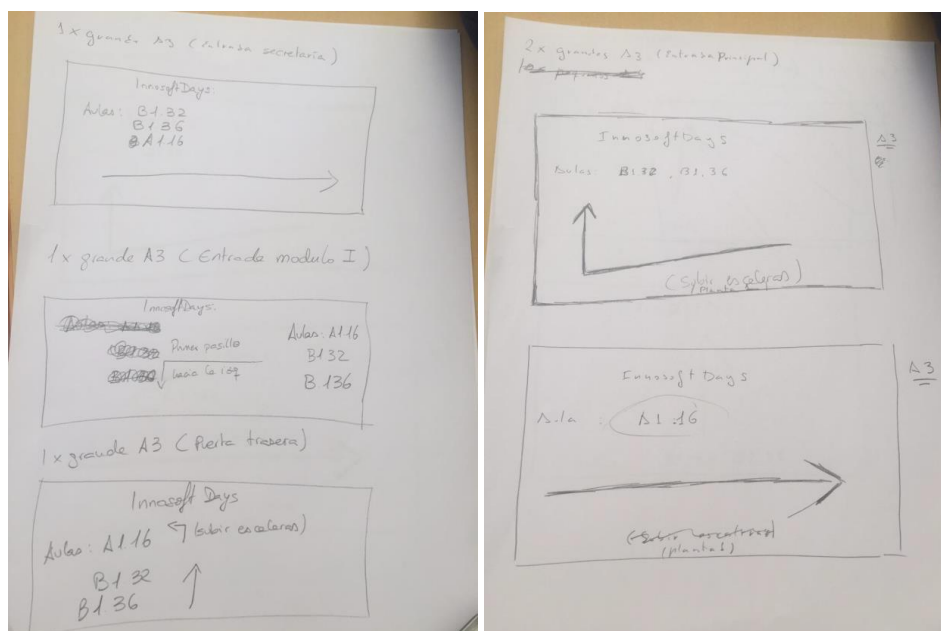 1x grande A3 (Entrada secretaría)
InnosoftDays:
Aulas: B1.32
B1.36
A1.16
1x grande A3 (Entrada modulo I)
InnosoftDays:
Primer pasillo
hacia la izq
Aulas: A1.16
B1 32
B 136
1x grande A3 (Puerta trasera)
Innosoft Days
Aulas: A1 16 (subir escaleras)
B1 32
B1 36
2x grandes A3 (Entrada Principal)
InnosoftDays
Aulas: B1.32 . B1.36
A3
(Subir escaleras)
Innosoft Days
A3
A1.16
(planta1)